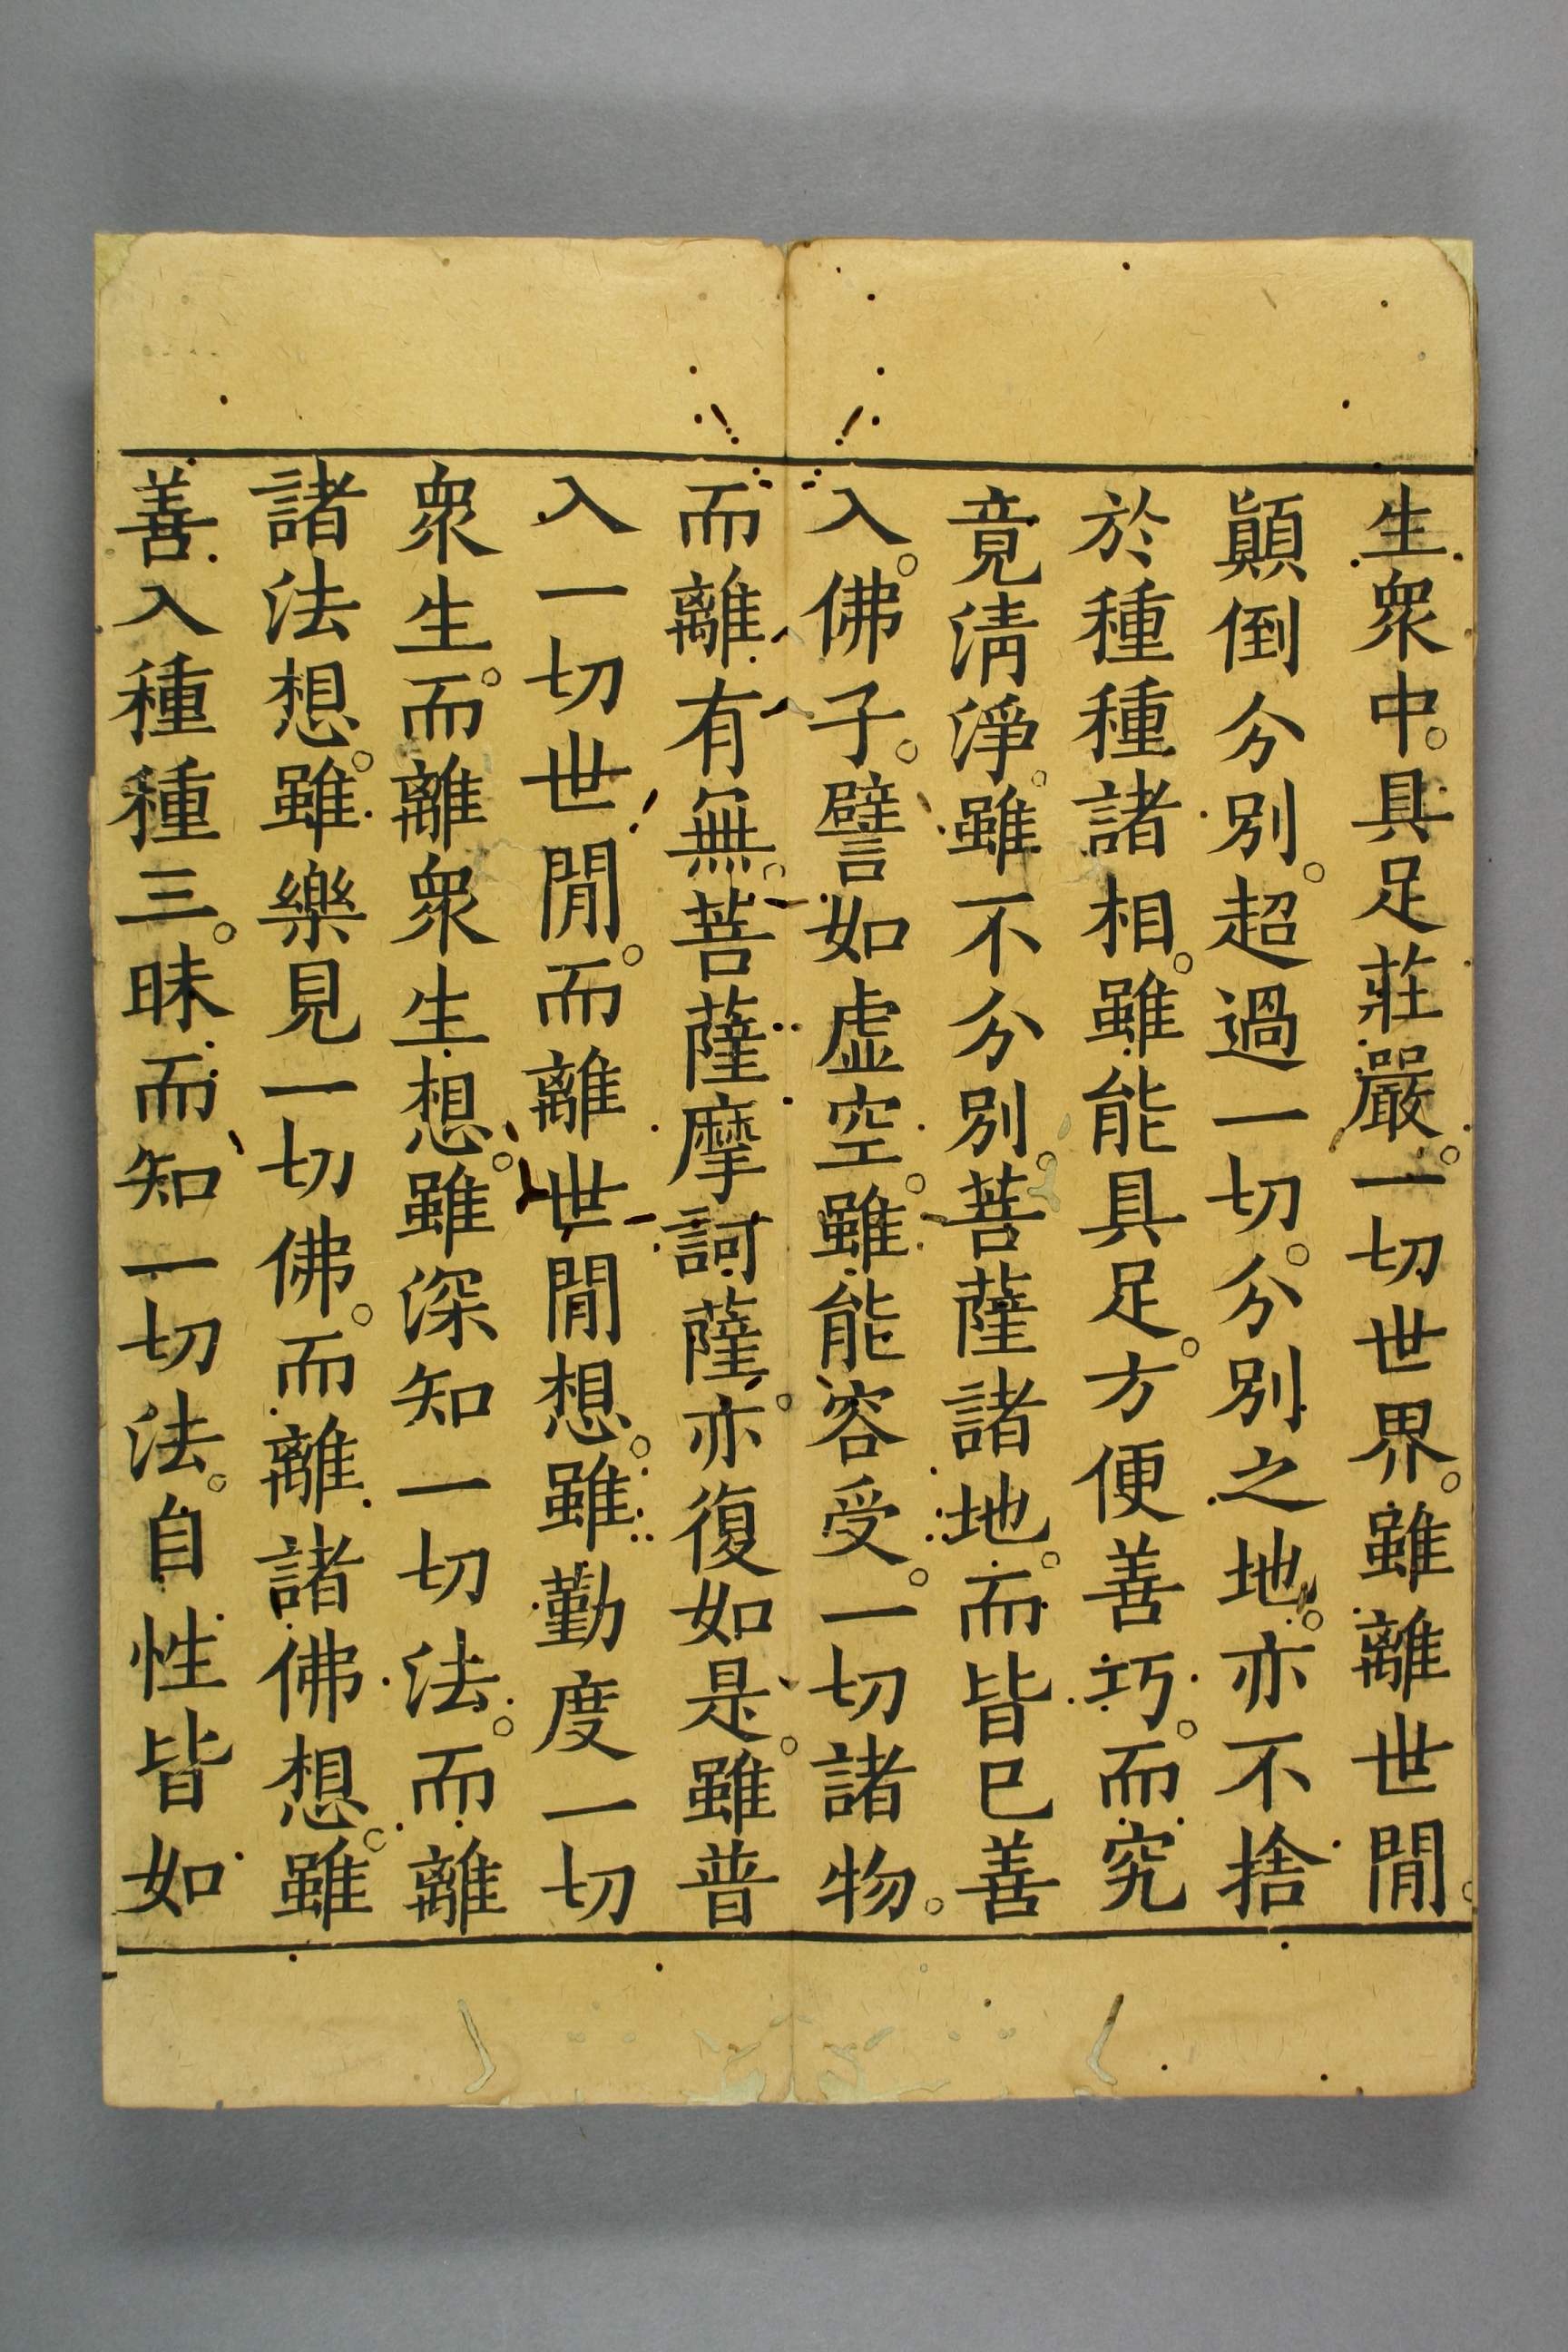 生衆中。具足莊嚴。一切世界。雖離世閒。
顚倒分別。超過一切。分別之地。亦不捨
於種種諸相。雖能具足。方便善巧。而究
竟淸淨。雖不分別。菩薩諸地。而皆已善
入。佛子。譬如虛空。雖能容受。一切諸物。
而離有無。菩薩摩訶薩。亦復如是。雖普
入一切世閒。而離世閒想。雖勤度一切
衆生。而離衆生想。雖深知一切法。而離
諸法想。雖樂見一切佛。而離諸佛想。雖
善入種種三。昧而知一切法。自性皆如